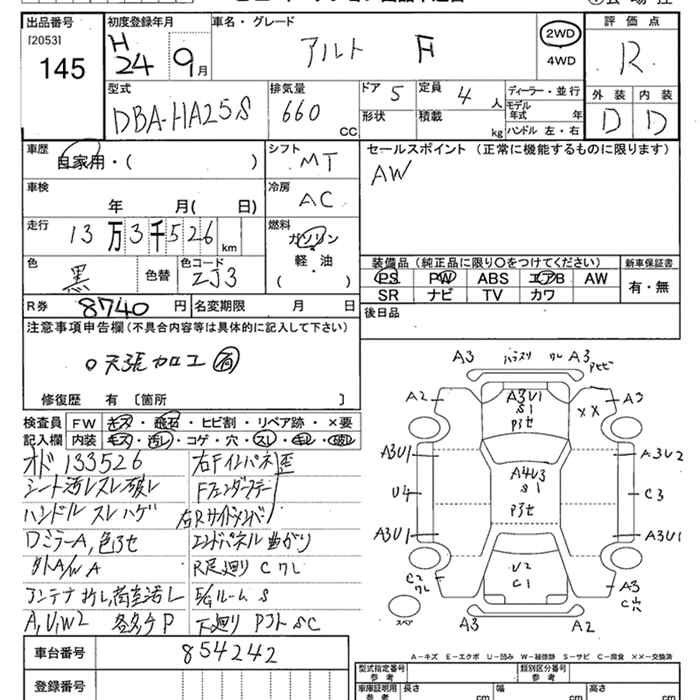 出品番号
[2053]
145
初度登録年月
H
24 9月
車名・グレード
アルト F
2WD
4WD
評価点
R
型式
DBA-HA25S
排気量
660
CC
ドア 5
形状
定員 4 人
積載 kg
ディーラー・並行
モデル
年式 年
ハンドル 左・右
外装 内装
D D
車歴
自家用・( )
シフト
MT
セールスポイント (正常に機能するものに限ります)
AW
車検
年 月( 日)
冷房
AC
走行
13万3千526 km
燃料
ガソリン
軽・油
( )
色
黒
色替
色コード
ZJ3
装備品 (純正品に限り○をつけてください)
新車保証書
PS PW ABS エアB AW
SR ナビ TV カワ
有・無
R券 8740 円
名変期限 月 日
後日品
注意事項申告欄 (不具合内容等は具体的に記入して下さい)
○天張カロエ 有
修復歴 有 〔箇所 〕
検査員
記入欄
FW キズ・飛石・ヒビ割・リペア跡・×要
内装 キズ・汚レ・コゲ・穴・スレ・キレ・破レ
オド 133526
シート汚レスレ破レ
ハンドル スレハゲ
ロミラーA,色ヨセ
外A/W A
A,U,W2 各多々P
右Fインパネ歪
Fフェンダーステー
右Rサイドシルバリ
エンドパネル曲がり
R足廻り Cワレ
E/Gルーム S
下廻り Pヨト SC
A3 A3
A2 A3U1 S1 Pヨセ XX A3
A3U1 A3U2
U4 A4U3 S1 Pヨセ C3
A3U1 A3U1
C2 ワレ U2 C1 A3 C穴
スペア
A3 A2
車台番号 854242
A－キズ E－エクボ U－凹み W－補修跡 S－サビ C－腐食 ××－交換済
型式指定番号
参考
類別区分番号
参考
登録番号
車庫証明用
参考
長さ cm
幅 cm
高さ cm